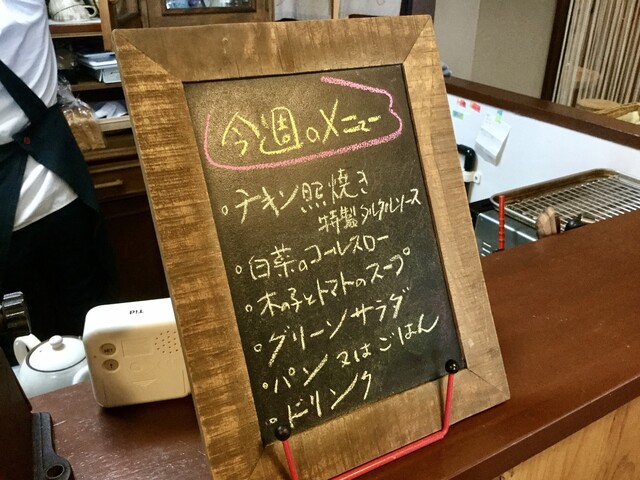 今週のメニュー
○チキン照焼き
特製タルタルソース
○白菜のコールスロー
○木の子とトマトのスープ
○グリーンサラダ
○パン 又はごはん
○ドリンク